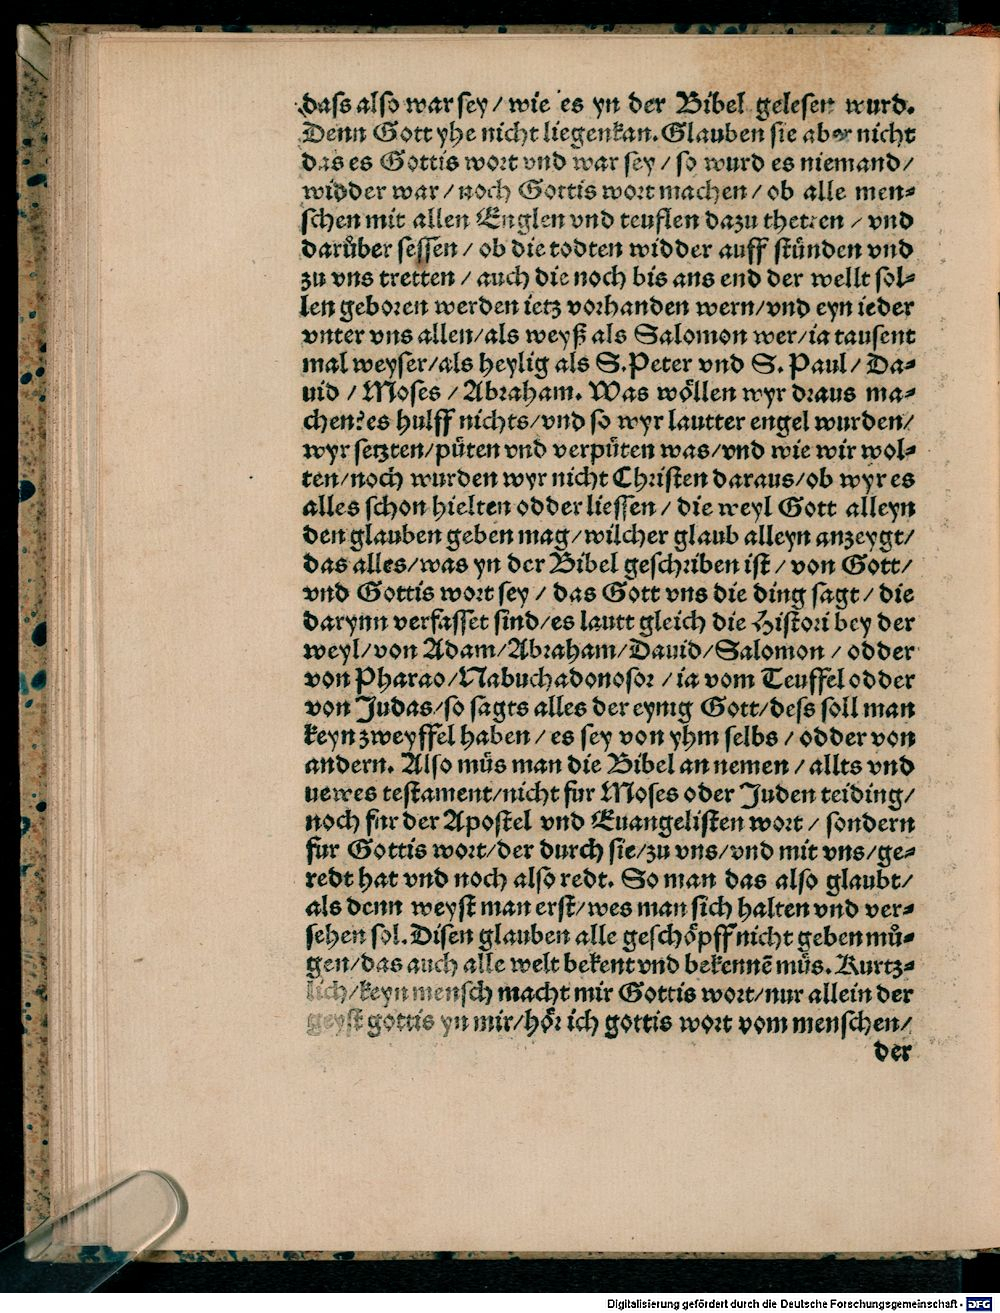 dass also war sey / wie es yn der Bibel gelesen wurd.
Denn Gott yhe nicht liegen kan. Glauben sie aber nicht
das es Gottis wort vnd war sey / so wurd es niemand /
widder war / noch Gottis wort machen / ob alle men⸗
schen mit allen Englen vnd teuflen dazu thetten / vnd
darůber sessen / ob die todten widder auff stünden vnd
zu vns tretten / auch die noch bis ans end der wellt sol⸗
len geboren werden ietz vorhanden wern / vnd eyn ieder
vnter vns allen / als weyß als Salomon wer / ia tausent
mal weyser / als heylig als S. Peter vnd S. Paul / Da⸗
uid / Moses / Abraham. Was wöllen wyr draus ma⸗
chen? es hulff nichts / vnd so wyr lautter engel wurden /
wyr setzten / püten vnd verpüten was / vnd wie wir wol⸗
ten / noch wurden wyr nicht Christen daraus / ob wyr es
alles schon hielten odder liessen / die weyl Gott alleyn
den glauben geben mag / wilcher glaub alleyn anzeygt /
das alles / was yn der Bibel geschriben ist / von Gott /
vnd Gottis wort sey / das Gott vns die ding sagt / die
darynn verfasset sind / es lautt gleich die Histori bey der
weyl / von Adam / Abraham / Dauid / Salomon / odder
von Pharao / Nabuchadonosor / ia vom Teuffel odder
von Judas / so sagts alles der eynig Gott / dess soll man
keyn zweyffel haben / es sey von yhm selbs / odder von
andern. Also müs man die Bibel an nemen / allts vnd
uewes testament / nicht fur Moses oder Juden teiding /
noch fur der Apostel vnd Euangelisten wort / sondern
fur Gottis wort / der durch sie / zu vns / vnd mit vns / ge⸗
redt hat vnd noch also redt. So man das also glaubt /
als denn weyst man erst / wes man sich halten vnd ver⸗
sehen sol. Disen glauben alle geschöpff nicht geben mů⸗
gen / das auch alle welt bekent vnd bekennē müs. Kurtz⸗
lich / keyn mensch macht mir Gottis wort / nur allein der
geyst gottis yn mir / hör ich gottis wort vom menschen /
der
Digitalisierung gefördert durch die Deutsche Forschungsgemeinschaft - DFG